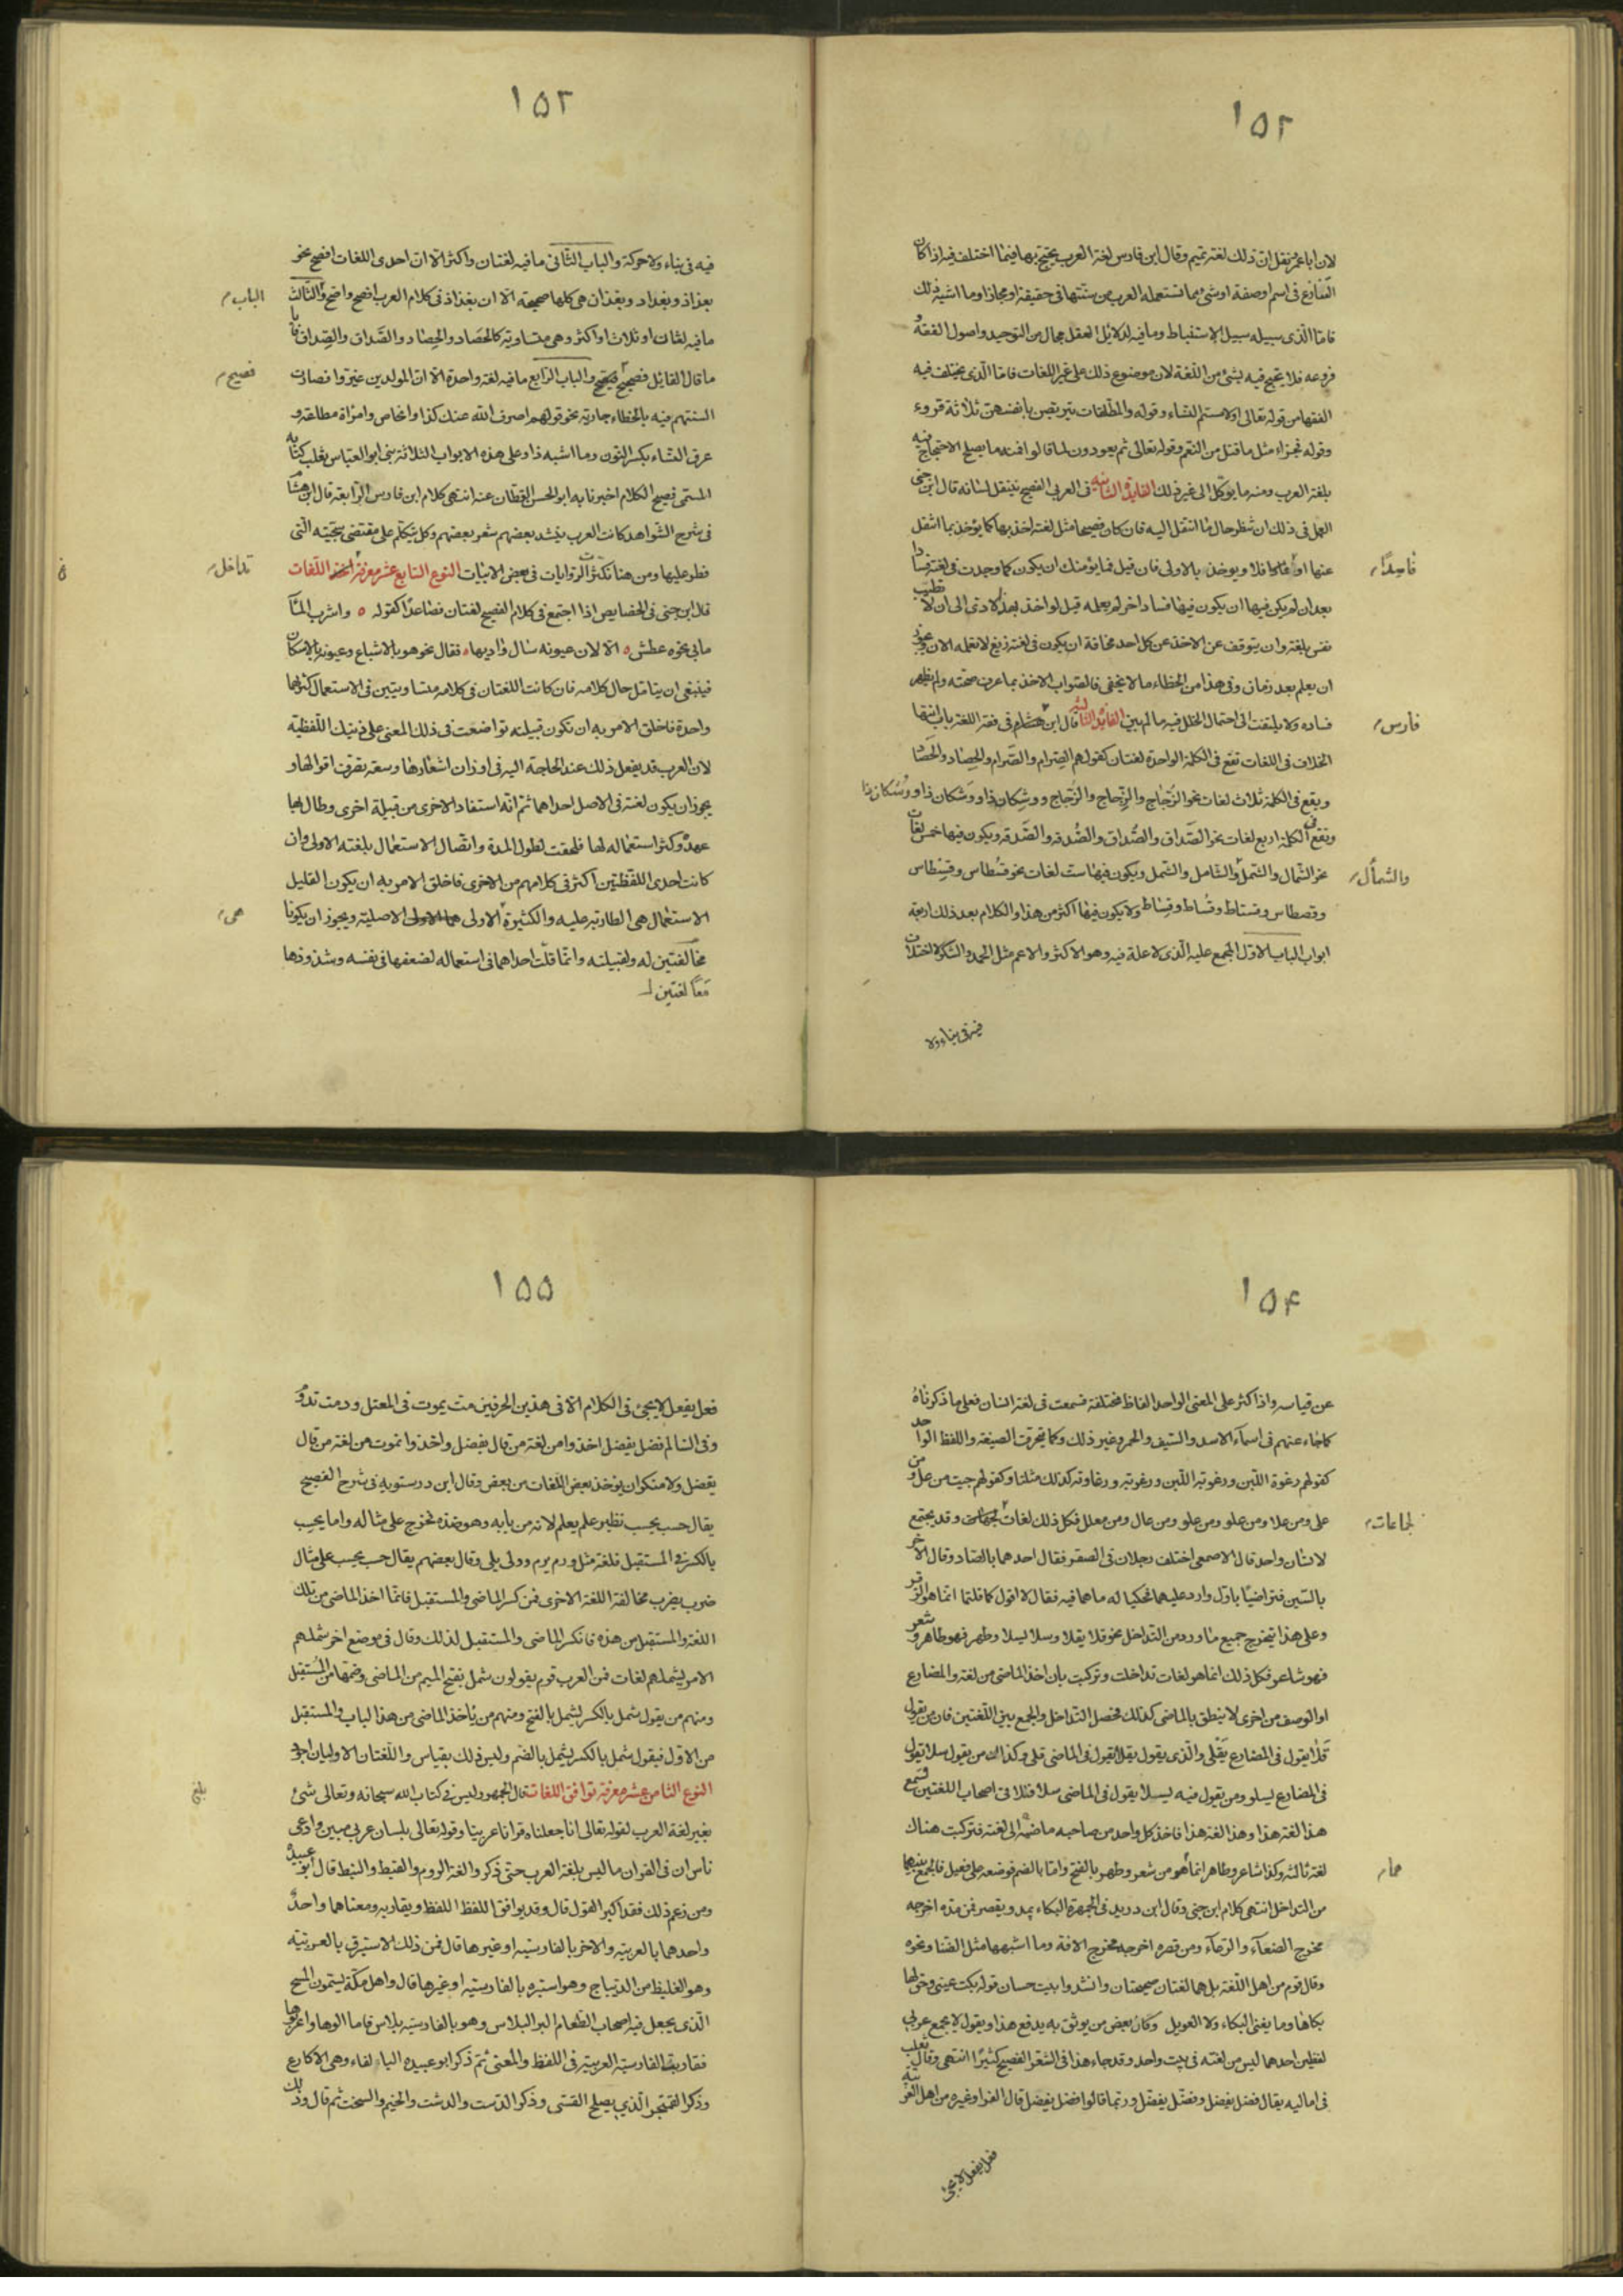 ١٥٢
لان اباعمر نقل ان ذلك لغة تميم وقال ابن فارس لغة العرب يحتج بها فيما اختلف فيه اذا كان
التنازع فى اسم او صفة او شئ مما تستعمله العرب من سنتها فى حقيقة او مجاز او ما اشبه ذلك
فاما الذى سبيله سبيل الاستنباط وما فيه لدلائل العقل مجال من التوحيد واصول الفقه و
فروعه فلا يحتج فيه بشئ من اللغة لان موضوع ذلك على غير اللغات فاما الذى يختلف فيه
الفقها من قوله تعالى اولامستم النساء وقوله والمطلقات يتربصن بانفسهن ثلاثة قروء
وقوله فجزاء مثل ما قتل من النعم وقوله تعالى ثم يعودون لما قالوا فمنه ما يصلح الاحتجاج فيه
بلغة العرب ومنه ما يوكل الى غير ذلك الفايدة الثانيه فى العربى الفصيح ينتقل لسانه قال ابن جنى
العمل فى ذلك ان تنظر حال ما انتقل اليه فان كان فصيحا مثل لغته اخذ بها كما يؤخذ بما انتقل
عنها او فلا ويوخذ بالاولى فان قيل فما يؤمنك ان يكون كما وجدت فى لغته فسادا
فاسداً
بعد ان لم يكن فيها ان يكون فيها فساد اخر لم يعلمه قيل لو اخذ بهذا لادى الى ان لا تطيب
نفس بلغة وان يتوقف عن الاخذ عن كل احد مخافة ان يكون فى لغته زيغ لا نعلمه الان ويجوز
ان يعلم بعد زمان وفى هذا من الخطاء ما لا يخفى فالصواب الاخذ بما عرف صحته ولم يظهر
فساده ولا يلتفت الى احتمال الخلل فيه ما لم يبين الفايدة الثالثه قال ابن هشام فى فقه اللغة باب انتها
فارس
الخلاف فى اللغات تقع فى الكلمة الواحدة لغتان كقولهم الصِرام والصَرام والحِصاد والحَصاد
ويقع فى الكلمة ثلاث لغات نحو الزُجاج والزِجاج والزَجاج ووشِكان ذا ووَشكان ذا ووُشكان ذا
وتقع فى الكلمة اربع لغات نحو الصَداق والصِداق والصُدقة والصَدقة ويكون فيها خمس لغات
نحو الشمال والشمل والشامل والشمل ويكون فيها ست لغات نحو قسطاس وقسطاس
والشمأل
وقصطاس وقستاط وقساط وقساط ولا يكون فيها اكثر من هذا والكلام بعد ذلك اربعة
ابواب الباب الاول المجمع عليه الذى لا علة فيه وهو الاكثر والاعم مثل الحمد والشكر لا اختلاف
فيه فى بناء ولا
١٥٣
فيه فى بناء ولا حركة والباب الثانى ما فيه لغتان واكثر الا ان احدى اللغات افصح نحو
بغداذ وبغداد وبغدان هى كلها صحيحة الا ان بغداد فى كلام العرب اصح واوضح والثالث
الباب
ما فيه لغتان او ثلاث او اكثر وهى متساوية كالحَصاد والحِصاد والصَداق والصِداق فايا
ما قال القائل فصحيح فصيح والباب الرابع ما فيه لغة واحدة الا ان المولدين غيروا فصارت
فصيح
السنتهم فيه بالخطاء جارية نحو قولهم اصرف الله عنك كذا وانخاص وامراة مطاعة و
عرق النساء بكسر النون وما اشبه ذا وعلى هذه الابواب الثلاثة بنى ابو العباس ثعلب كتابه
المسمى فصيح الكلام اخبرنا به ابو الحسن القطان عنه انتهى كلام ابن فارس الرابعة قال ابن هشام
فى شرح الشواهد كانت العرب ينشد بعضهم شعر بعضهم وكل يتكلم على مقتضى سجيته التى
فطر عليها ومن هنا تكثرت الروايات فى بعض الابيات النوع السابع عشر معرفة اللغات
تداخل
قال ابن جنى فى الخصايص اذا اجتمع فى كلام الفصيح لغتان فصاعدا كقوله ٥ واشرب المآ
مابى نحوه عطش ٥ الا لان عيونه سال واديها ٥ فقال نحوهو بالاشباع وعيونه بالاسكان
فينبغى ان يتامل حال كلامه فان كانت اللغتان فى كلامه متساويتين فى الاستعمال كثرتهما
واحدة فاخلق الامر به ان تكون قبيلته تواضعت فى ذلك المعنى على ذينك اللفظية
لان العرب قد يفعل ذلك عند الحاجة اليه فى اوزان اشعارها وسعة تصرف اقوالها و
يجوز ان يكون لغته فى الاصل احداهما ثم انه استفاد الاخرى من قبيلة اخرى وطال بها
عهده وكثر استعماله لها فلحقت لطول المدة واتصال الاستعمال بلغته الاولى وان
كانت احدى اللفظتين اكثر فى كلامهم من الاخرى فاخلق الامر به ان يكون القليل
الاستعمال هى الطارية عليه والكثيرة الاولى الاصلية ويجوز ان يكونا
هى
مخالفتين له ولقبيلته وانما قلت احداهما فى استعماله لضعفها فى نفسه وشذوذها
معاً لغتين
١٥٤
عن قياسه واذا كثر على المعنى الواحد الفاظ مختلفة فسمعت فى لغة انسان فعلى ما ذكرناه
كما جاء عنهم فى اسمآء الاسد والسيف والخمر وغير ذلك وكما تحرف الصيغة واللفظ الواحد
كقولهم رغوة اللبن ورغوته اللبن ورغوته ورغاوته كذلك مثلثا وكقولهم جيت من عل ومن
على ومن علا ومن علو ومن علو ومن عال ومن معلل فكل ذلك لغات وقد يجتمع
لجماعات
لانسان واحد قال الاصمعى اختلف رجلان فى الصقر فقال احدهما بالصاد وقال الآخر
بالسين فتراضيا باول وارد عليهما فحكيا له ما هما فيه فقال لا اقول كما قلتما انما هو الزقر
وعلى هذا يتخرج جميع ما ورد من التداخل نحو قلا يقلا وسلا يسلا وطهر فهو طاهر وشعر
فهو شاعر فكل ذلك انما هو لغات تداخلت وتركبت بان اخذ الماضى من لغة والمضارع
او الوصف من اخرى لا ينطق بالماضى كذلك فحصل التداخل والجمع بين اللغتين فان من يقول
قلا يقول فى المضارع يقلى والذى يقول يقلا يقول فى الماضى قلى وكذلك من يقول سلا يقول
فى المضارع يسلو ومن يقول فيه يسلا يقول فى الماضى سلى فتلاقى اصحاب اللغتين فسمع
هذا لغة هذا وهذا لغة هذا فاخذ كل واحد من صاحبه ما ضمه الى لغته فتركبت هناك
لغة ثالثه وكذا شاعر وطاهر انما هو من شعر وطهر بالفتح واما بالضم فوصفه على فعيل فالجمع بينهما
هما
من التداخل انتهى كلام ابن جنى وقال ابن دريد فى الجمهرة البكاء يمد ويقصر فمن مده اخرجه
مخرج الضغآء والرغآء ومن قصره اخرجه مخرج الافة وما اشبهها مثل الضنا ونحوه
وقال قوم من اهل اللغة بل هما لغتان صحيحتان وانشدوا بيت حسان قوله بكت عينى وحق لها
بكاها وما يغنى البكاء ولا العويل وكان بعض من يوثق به يدفع هذا ويقول لا يجمع عربى
لفظين احدهما ليس من لغته فى بيت واحد وقد جاء هذا فى الشعر الفصيح كثيرا انتهى وقال ثعلب
فى اماليه يقال فضل يفضل وفضل يفضل وربما قالوا فضل يفضل قال الفرا وغيره من اهل العربيه
فعل يفعل لا يجئ
١٥٥
فعل يفعل لا يجئ فى الكلام الا فى هذين الحرفين مت يموت فى المعتل ودمت تدوم
وفى السالم فضل يفضل اخذوا من لغة من قال يفضل واخذوا تموت من لغة من قال
يفضل ولا منكر ان يوخذ بعض اللغات من بعض وقال ابن درستويه فى شرح الفصيح
يقال حسب يحسب نظير علم يعلم لانه من بابه وهو ضده فخرج على مثاله واما يحسب
بالكسر فى المستقبل فلغة مثل ورم يرم وولى يلى وقال بعضهم يقال حسب يحسب على مثال
ضرب يضرب مخالفة اللغة الاخرى فمن كسر الماضى والمستقبل فانما اخذ الماضى من تلك
اللغة والمستقبل من هذه فانكسر الماضى والمستقبل لذلك وقال فى موضع اخر شملهم
الامر يشملهم لغات فمن العرب قوم يقولون شمل بفتح الميم من الماضى وضمها من المستقبل
ومنهم من يقول شمل بالكسر يشمل بالفتح ومنهم من ياخذ الماضى من هذا الباب والمستقبل
من الاول فيقول شمل بالكسر يشمل بالضم وليس ذلك بقياس واللغتان الاوليان اجود
النوع الثامن عشر معرفة توافق اللغات قال الجمهور ليس فى كتاب الله سبحانه وتعالى شئ
بلغ
بغير لغة العرب لقوله تعالى انا جعلناه قرانا عربيا وقوله تعالى بلسان عربى مبين وادعى
ناس ان فى القران ما ليس بلغة العرب حتى ذكروا لغة الروم والقبط والنبط قال ابو عبيدة
ومن زعم ذلك فقد اكبر القول قال وقد يوافق اللفظ اللفظ ويقاربه ومعناهما واحد
واحدهما بالعربية والاخر بالفارسية او غيرها قال فمن ذلك الاستبرق بالعربية
وهو الغليظ من الديباج وهو استبره بالفارسية او غيرها قال واهل مكة يسمون المسح
الذى يجعل فيه اصحاب الطعام البر البلاس وهو بالفارسيه پلاس فامالوها واعربوها
فقاربت الفارسية العربية فى اللفظ والمعنى ثم ذكر ابو عبيده البالغاء وهى الاكارع
وذكر القمنجر الذى يصلح القسى وذكر الدست والدشت والخيم والسخت ثم قال وذلك